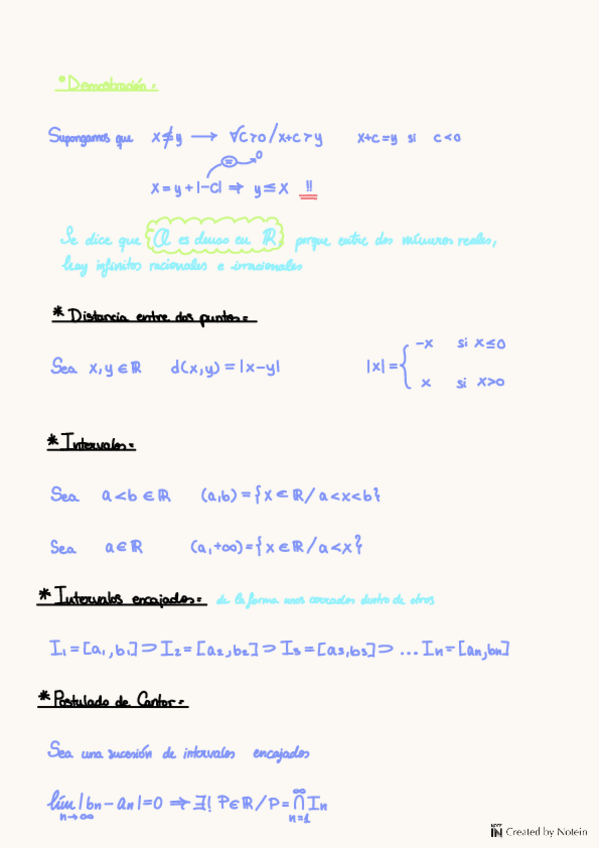 *Demostración=
Supongamos que x≰y → ∀c>0/x+c>y x+c=y si c<0
= 0
x=y+|-c| ⇒ y≤x !!
Se dice que Q es denso en ℝ, porque entre dos números reales,
hay infinitos racionales e irracionales
* Distancia entre dos puntos=
Sea x,y∈ℝ d(x,y)=|x-y| |x|={ -x si x≤0
x si x>0
* Intervalos=
Sea a<b∈ℝ (a,b)={x∈ℝ/a<x<b}
Sea a∈ℝ (a,+∞)={x∈ℝ/a<x}
* Intervalos encajados= de la forma unos cerrados dentro de otros
I₁=[a₁,b₁]⊃I₂=[a₂,b₂]⊃I₃=[a₃,b₃]⊃...Iₙ=[aₙ,bₙ]
* Postulado de Cantor=
Sea una sucesión de intervalos encajados
lím |bₙ-aₙ|=0 ⇒ ∃! P∈ℝ/P=⋂ Iₙ
n→∞ ∞ n=1
NOTE IN Created by Notein